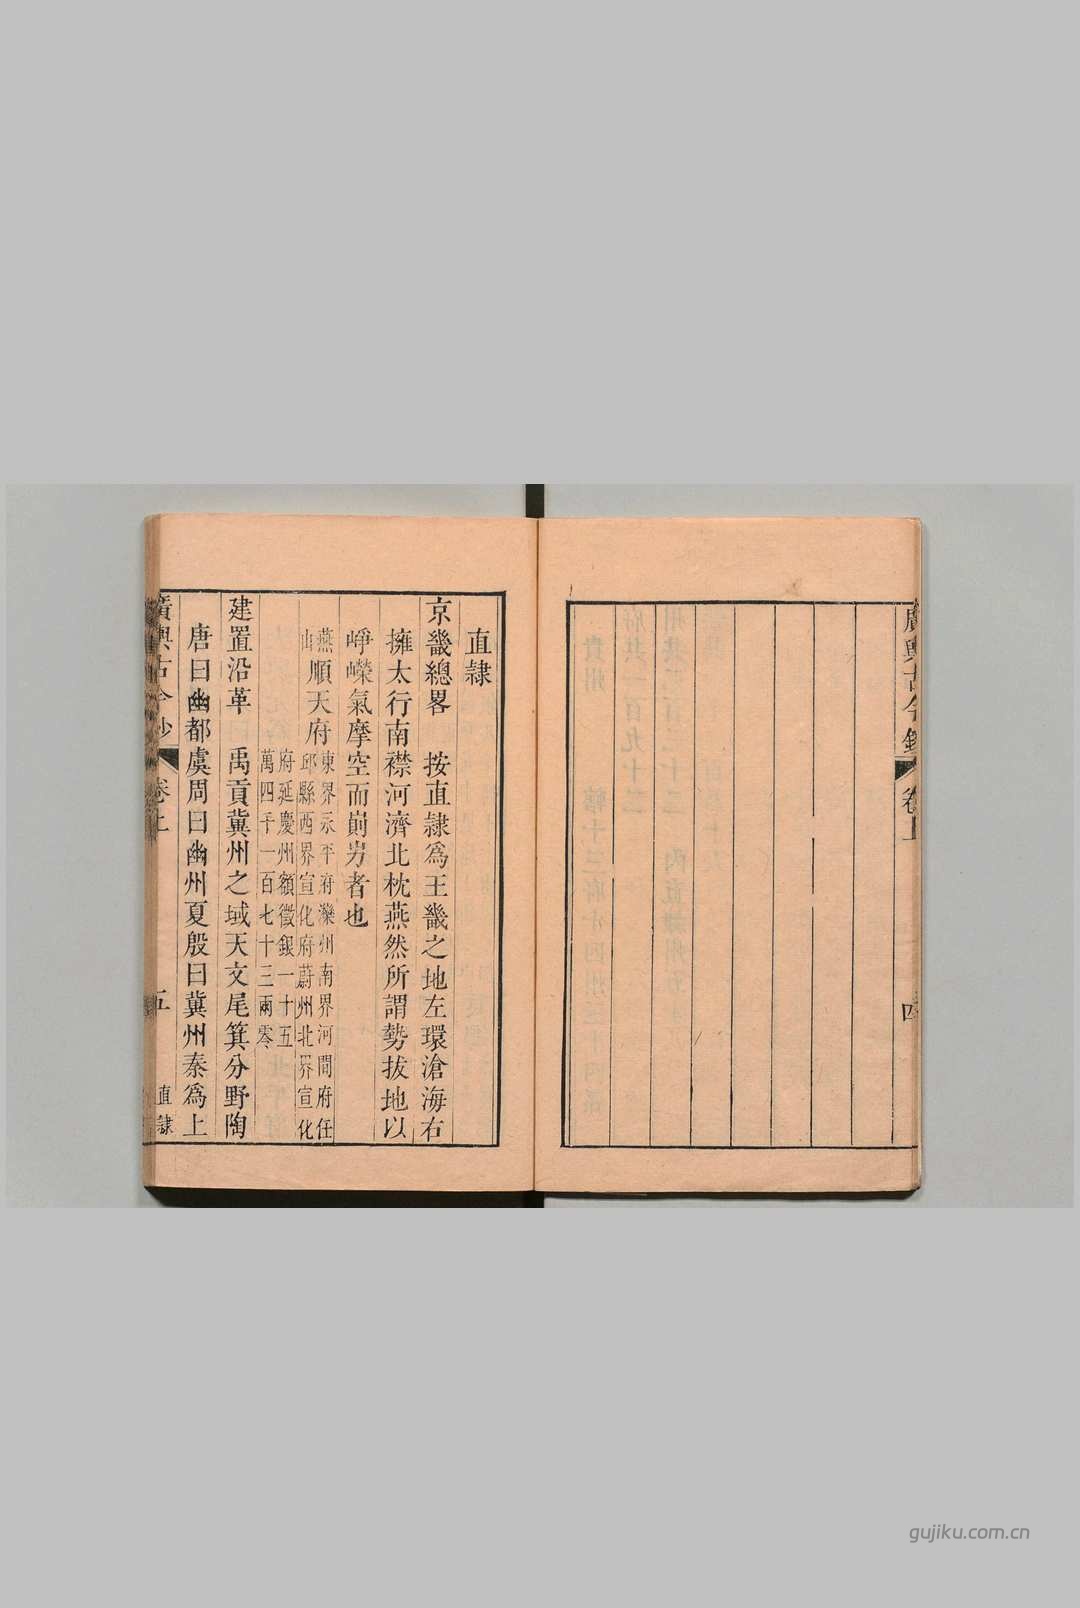 廣輿古今鈔
卷上
四
直隸
京畿總畧　按直隸爲王畿之地左環滄海右
擁太行南襟河濟北枕燕然所謂勢拔地以
崢嶸氣摩空而崱屴者也
燕山
順天府
東界永平府灤州南界河間府任
邱縣西界宣化府蔚州北界宣化
府延慶州額徵銀一十五
萬四千一百七十三兩零
建置沿革　禹貢冀州之域天文尾箕分野陶
唐曰幽都虞周曰幽州夏殷曰冀州秦爲上
廣輿古今鈔
卷上
五
直隸
gujiku.com.cn